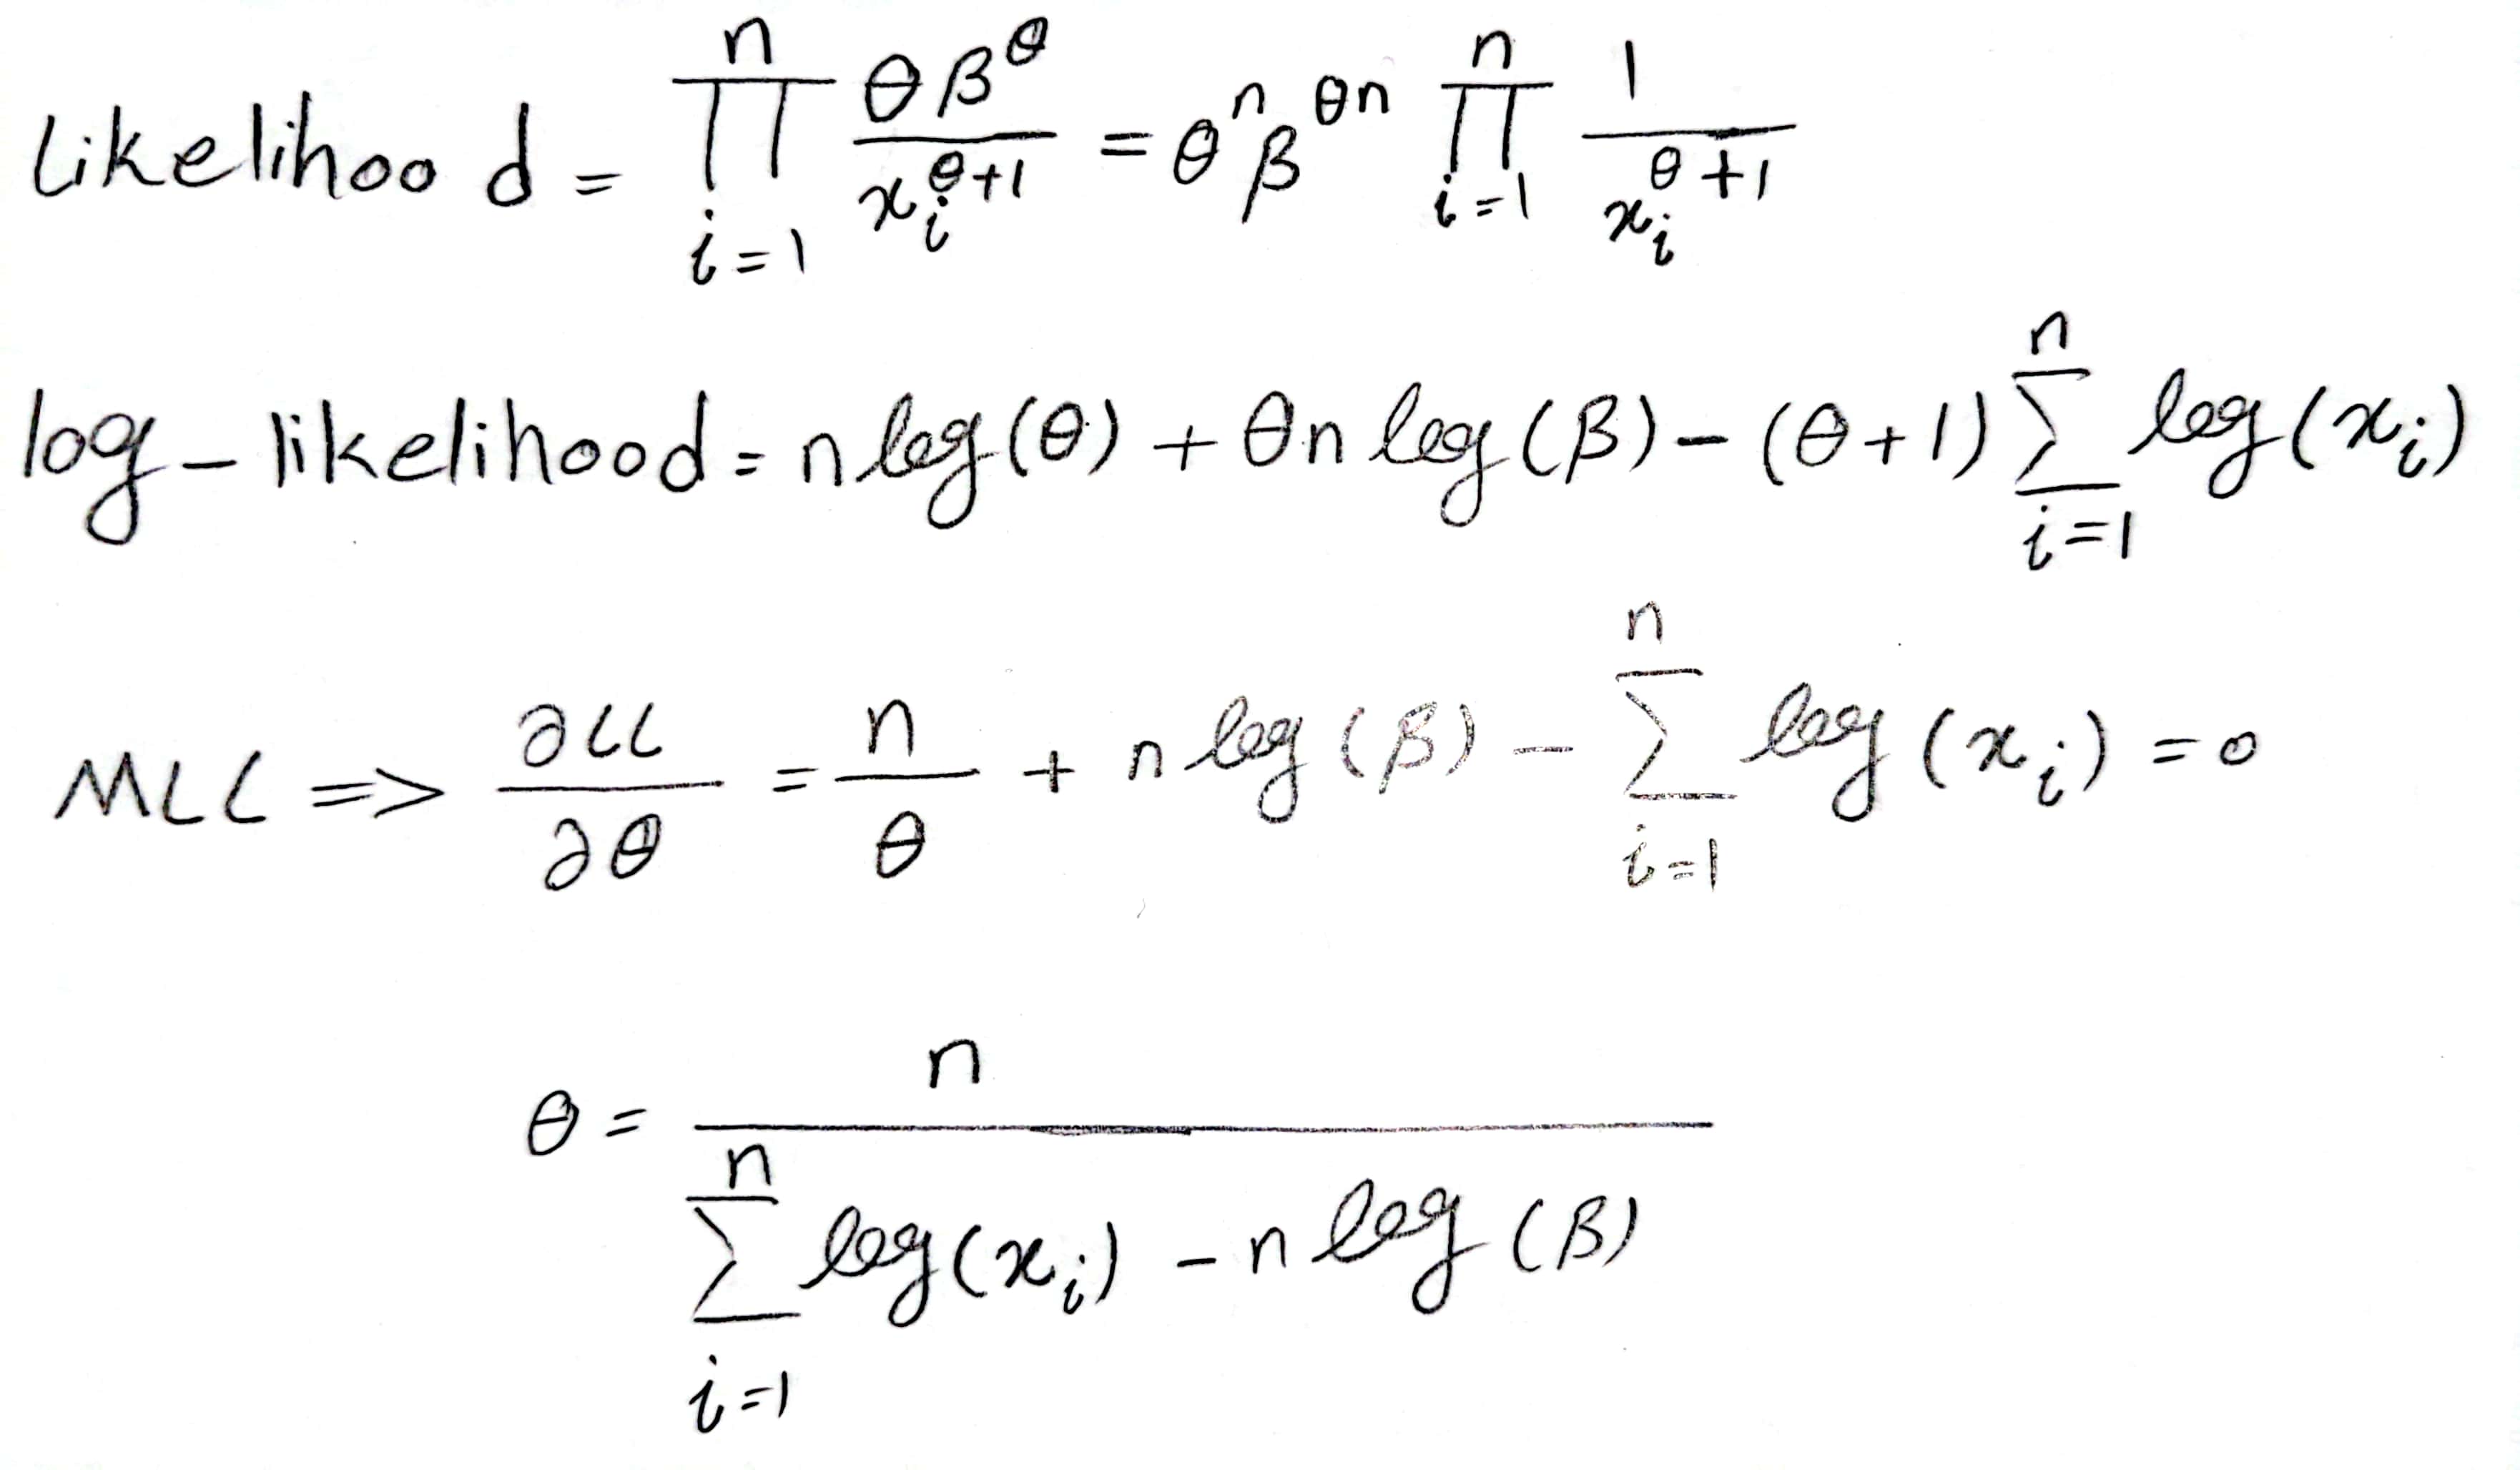 Likelihood = \prod_{i=1}^{n} \frac{\theta \beta^{\theta}}{x_i^{\theta+1}} = \theta^{n} \beta^{\theta n} \prod_{i=1}^{n} \frac{1}{x_i^{\theta+1}}
log-likelihood = n log(\theta) + \theta n log(\beta) - (\theta+1) \sum_{i=1}^{n} log(x_i)
MLL => \frac{\partial LL}{\partial \theta} = \frac{n}{\theta} + n log(\beta) - \sum_{i=1}^{n} log(x_i) = 0
\theta = \frac{n}{\sum_{i=1}^{n} log(x_i) - n log(\beta)}